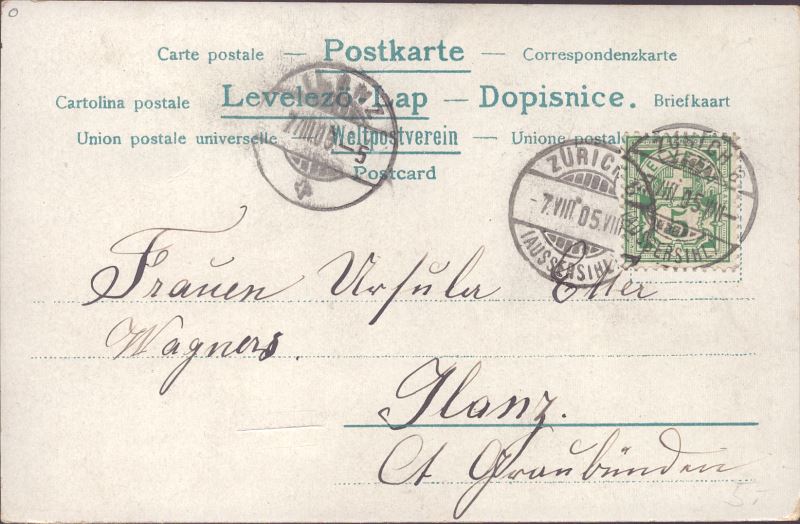 Carte postale — Postkarte — Correspondenzkarte
Cartolina postale — Levelező Lap — Dopisnice. Briefkaart
Union postale universelle — Weltpostverein — Unione postale
Postcard
ILANZ
7.VIII.05.-5
ZÜRICH
-7.VIII.05.VIII
(AUSSERSIHL)
ZÜRICH
VIII.05.VIII
AUSSERSIHL
5
Frauen Ursula Etter
Wagners.
Ilanz.
Ct Graubünden
5.-